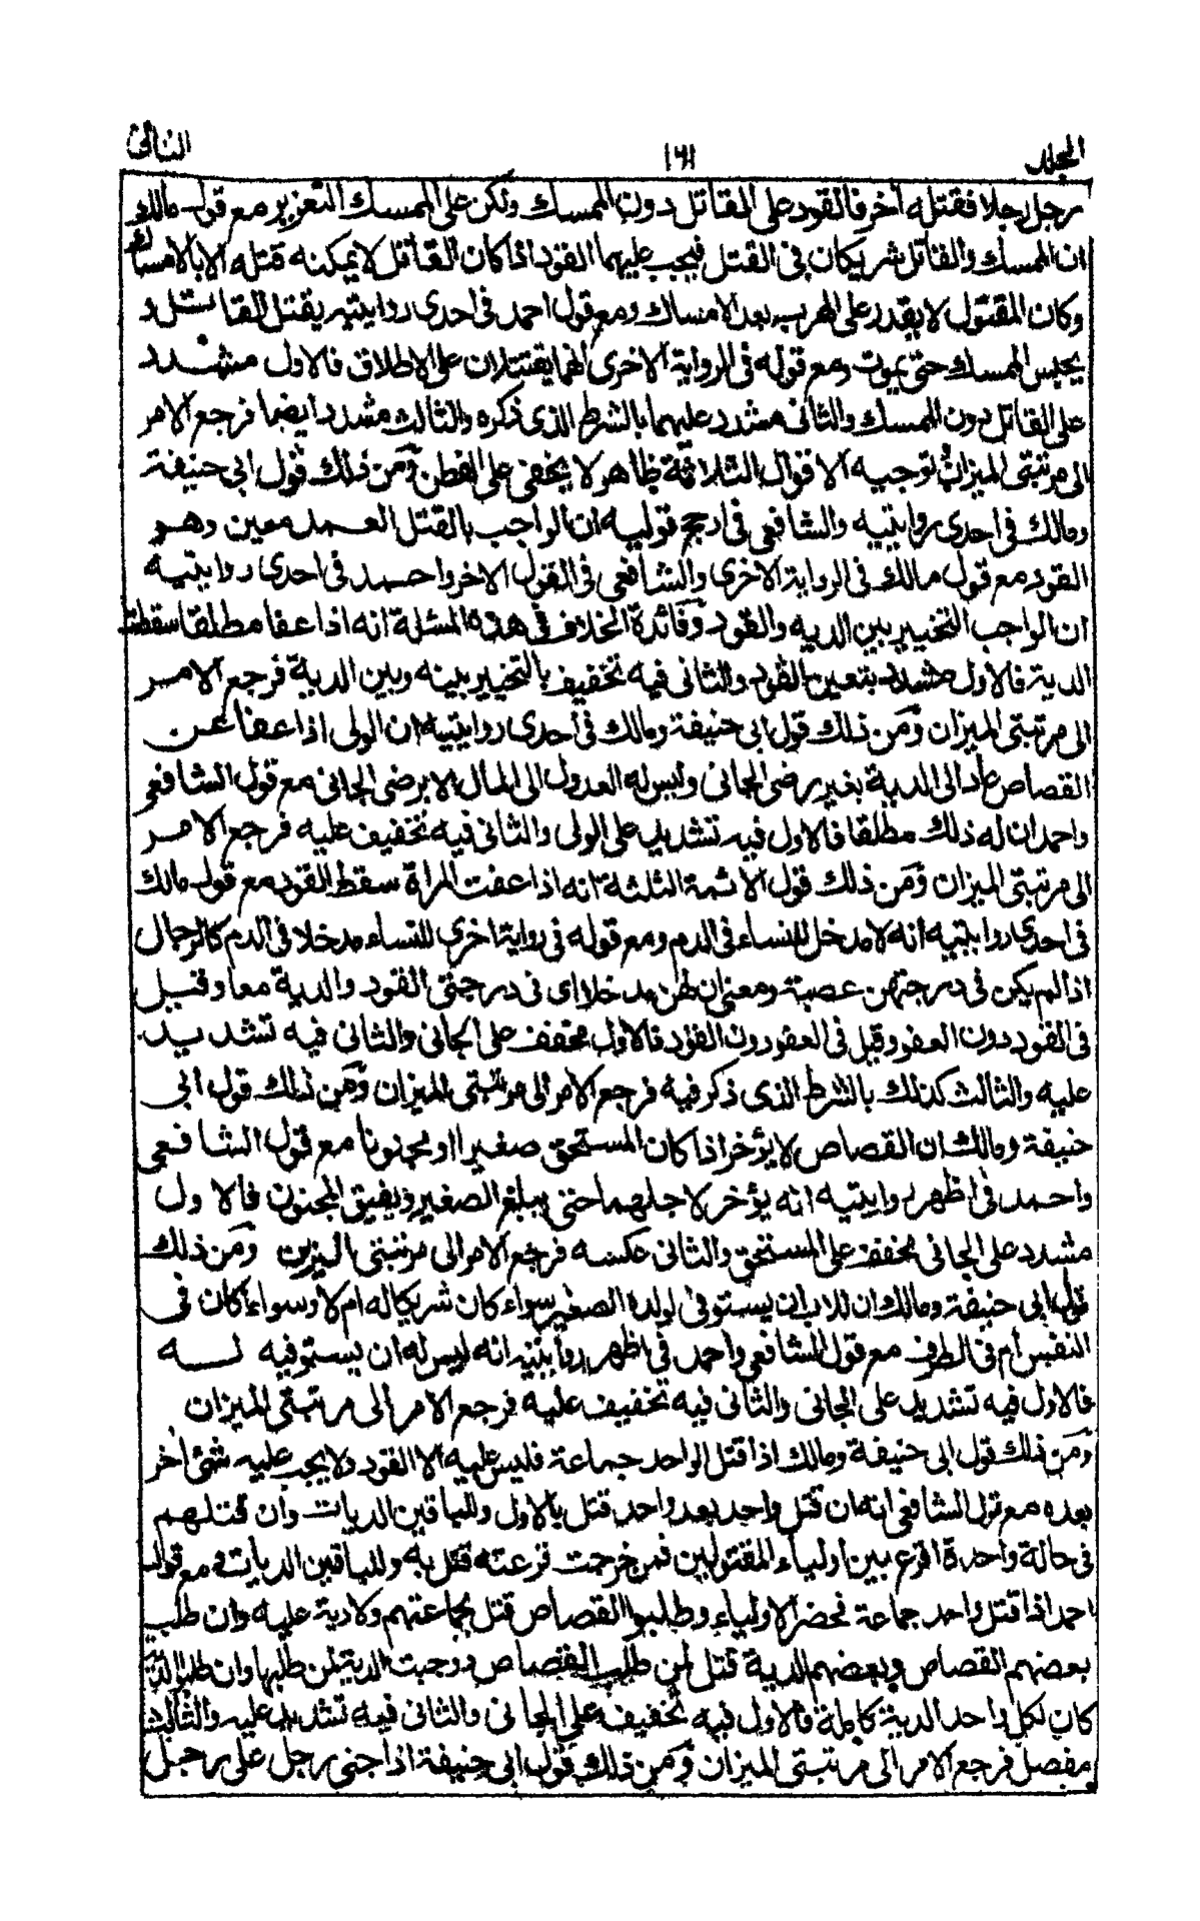 المجلد
١٦١
الثانی
رجل رجلا فقتله اخر فالقود على القاتل دون الممسك ولكن على الممسك التعزير مع قول مالك
ان الممسك والقاتل شريكان فى القتل فيجب عليهما القود اذا كان القاتل لا يمكنه قتله الا بالامساك
وكان المقتول لا يقدر على الهرب بعد الامساك ومع قول احمد فى احدى روايتيه يقتل القاتل و
يحبس الممسك حتى يموت ومع قوله فى الرواية الاخرى انهما يقتلان على الاطلاق فالاول مشدد
على القاتل دون الممسك والثانى مشدد عليهما بالشرط الذى ذكره والثالث مشدد ايضا فرجع الامر
الى مرتبتى الميزان وتوجيه الاقوال الثلاثة ظاهر لا يخفى على الفطن ومن ذلك قول ابى حنيفة
ومالك فى احدى روايتيه والشافعى فى ارجح قوليه ان الواجب بالقتل العمد معين وهو
القود مع قول مالك فى الرواية الاخرى والشافعى فى القول الاخر واحمد فى احدى روايتيه
ان الواجب التخيير بين الدية والقود وفائدة الخلاف فى هذه المسئلة انه اذا عفا مطلقا سقطت
الدية فالاول مشدد بتعين القود والثانى فيه تخفيف بالتخيير بينه وبين الدية فرجع الامر
الى مرتبتى الميزان ومن ذلك قول ابى حنيفة ومالك فى احدى روايتيه ان الولى اذا عفا عن
القصاص عاد الى الدية بغير رضى الجانى وليس له العدول الى المال الا برضى الجانى مع قول الشافعى
واحمد ان له ذلك مطلقا فالاول فيه تشديد على الولى والثانى فيه تخفيف عليه فرجع الامر
الى مرتبتى الميزان ومن ذلك قول الائمة الثلثة انه اذا عفت المراة سقط القود مع قول مالك
فى احدى روايتيه انه لا مدخل للنساء فى الدم ومع قوله فى رواية اخرى للنساء مدخلا فى الدم كالرجال
اذا لم يكن فى درجتهن عصبة ومعنى ان لهن مدخلا اى فى درجتى القود والدية معا وقيل
فى القود دون العفو وقيل فى العفو دون القود فالاول مخفف على الجانى والثانى فيه تشديد
عليه والثالث كذلك بالشرط الذى ذكر فيه فرجع الامر الى مرتبتى الميزان ومن ذلك قول ابى
حنيفة ومالك ان القصاص لا يؤخر اذا كان المستحق صغيرا او مجنونا مع قول الشافعى
واحمد فى اظهر روايتيه انه يؤخر لاجلهما حتى يبلغ الصغير ويفيق المجنون فالاول
مشدد على الجانى مخفف على المستحق والثانى عكسه فرجع الامر الى مرتبتى الميزان ومن ذلك
قول ابى حنيفة ومالك ان للاب ان يستوفى لولده الصغير سواء كان شريكا له ام لا وسواء اكان فى
النفس ام فى الطرف مع قول الشافعى واحمد فى اظهر روايتيه انه ليس له ان يستوفيه لـه
فالاول فيه تشديد على الجانى والثانى فيه تخفيف عليه فرجع الامر الى مرتبتى الميزان
ومن ذلك قول ابى حنيفة ومالك اذا قتل الواحد جماعة فليس عليه الا القود ولا يجب عليه شئ اخر
بعده مع قول الشافعى انه ان قتل واحد بعد واحد قتل بالاول وللباقين الديات وان قتلهم
فى حالة واحدة اقرع بين اولياء المقتولين فمن خرجت قرعته قتل به وللباقين الديات ومع قول
احمد اذا قتل واحد جماعة فحضر الاولياء وطلبوا القصاص قتل بجماعتهم ولا دية عليه وان طلب
بعضهم القصاص وبعضهم الدية قتل لمن طلب القصاص ووجبت الدية لمن طلبها وان طلبوا الدية
كان لكل واحد الدية كاملة فالاول فيه تخفيف على الجانى والثانى فيه تشديد عليه والثالث
مفصل فرجع الامر الى مرتبتى الميزان ومن ذلك قول ابى حنيفة اذا جنى رجل على رجل